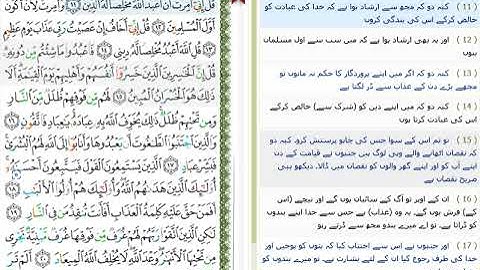 (11) کہہ دو کہ مجھ سے ارشاد ہوا ہے کہ خدا کی عبادت کو
خالص کرکے اس کی بندگی کروں
(12) اور یہ بھی ارشاد ہوا ہے کہ میں سب سے اول مسلمان
بنوں
(13) کہہ دو کہ اگر میں اپنے پروردگار کا حکم نہ مانوں تو
مجھے بڑے دن کے عذاب سے ڈر لگتا ہے
(14) کہہ دو کہ میں اپنے دین کو (شرک سے) خالص کرکے
اس کی عبادت کرتا ہوں
(15) تو تم اس کے سوا جس کی چاہو پرستش کرو۔ کہہ دو
کہ نقصان اٹھانے والے وہی لوگ ہیں جنہوں نے قیامت کے دن
اپنے آپ کو اور اپنے گھر والوں کو نقصان میں ڈالا۔ دیکھو یہی
صریح نقصان ہے
(16) ان کے اوپر تو آگ کے سائبان ہوں گے اور نیچے (اس
کے) فرش ہوں گے۔ یہ وہ (عذاب) ہے جس سے خدا اپنے بندوں
کو ڈراتا ہے۔ تو اے میرے بندو مجھ سے ڈرتے رہو
(17) اور جنہوں نے اس سے اجتناب کیا کہ بتوں کو پوجیں اور
خدا کی طرف رجوع کیا ان کے لئے بشارت ہے۔ تو میرے بندوں
قُلْ إِنِّي أُمِرْتُ أَنْ أَعْبُدَ اللَّهَ مُخْلِصًا لَهُ الدِّينَ ۝١١ وَأُمِرْتُ لِأَنْ أَكُونَ
أَوَّلَ الْمُسْلِمِينَ ۝١٢ قُلْ إِنِّي أَخَافُ إِنْ عَصَيْتُ رَبِّي عَذَابَ يَوْمٍ عَظِيمٍ
۝١٣ قُلِ اللَّهَ أَعْبُدُ مُخْلِصًا لَهُ دِينِي ۝١٤ فَاعْبُدُوا مَا شِئْتُمْ مِنْ دُونِهِ
قُلْ إِنَّ الْخَاسِرِينَ الَّذِينَ خَسِرُوا أَنْفُسَهُمْ وَأَهْلِيهِمْ يَوْمَ الْقِيَامَةِ أَلَا
ذَلِكَ هُوَ الْخُسْرَانُ الْمُبِينُ ۝١٥ لَهُمْ مِنْ فَوْقِهِمْ ظُلَلٌ مِنَ النَّارِ
وَمِنْ تَحْتِهِمْ ظُلَلٌ ذَلِكَ يُخَوِّفُ اللَّهُ بِهِ عِبَادَهُ يَا عِبَادِ فَاتَّقُونِ ۝١٦
وَالَّذِينَ اجْتَنَبُوا الطَّاغُوتَ أَنْ يَعْبُدُوهَا وَأَنَابُوا إِلَى اللَّهِ لَهُمُ الْبُشْرَى
فَبَشِّرْ عِبَادِ ۝١٧ الَّذِينَ يَسْتَمِعُونَ الْقَوْلَ فَيَتَّبِعُونَ أَحْسَنَهُ
أُولَئِكَ الَّذِينَ هَدَاهُمُ اللَّهُ وَأُولَئِكَ هُمْ أُولُو الْأَلْبَابِ ۝١٨
أَفَمَنْ حَقَّ عَلَيْهِ كَلِمَةُ الْعَذَابِ أَفَأَنْتَ تُنْقِذُ مَنْ فِي النَّارِ ۝١٩
لَكِنِ الَّذِينَ اتَّقَوْا رَبَّهُمْ لَهُمْ غُرَفٌ مِنْ فَوْقِهَا غُرَفٌ مَبْنِيَّةٌ تَجْرِي
مِنْ تَحْتِهَا الْأَنْهَارُ وَعْدَ اللَّهِ لَا يُخْلِفُ اللَّهُ الْمِيعَادَ ۝٢٠